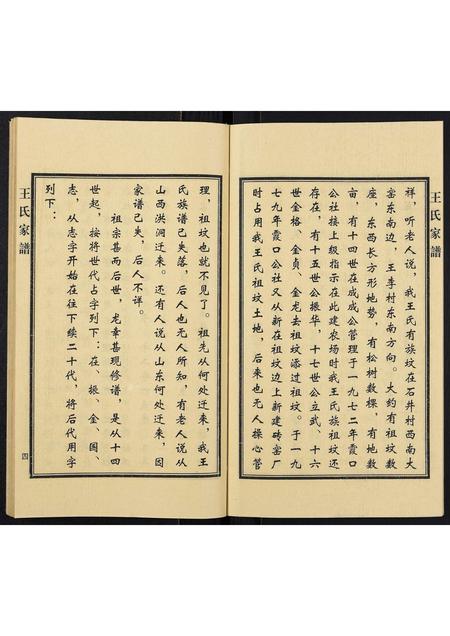 王氏家譜
祥，听老人说，我王氏有族坟在石井村西南大
窑东南边，王李村东南方向。大约有祖坟数
座，东西长方形地势，有松树数棵，有地数
亩，有十四世在成成公管理于一九七二年霞口
公社接上级指示在此建农场时我王氏族祖坟还
存在，有十五世公振华，十七世公立武、十六
世金格、金贞、金龙去祖坟添过祖坟。于一九
七九年霞口公社又从新在祖坟边上新建砖窑厂
时占用我王氏祖坟土地，后来也无人操心管
理，祖坟也就不见了。祖先从何处迁来，我王
氏族谱已失落，后人也无人所知，有老人说从
山西洪洞迁来。还有人说从山东何处迁来，因
家谱已失，后人不详。
祖宗甚而后世，龙幸甚现修谱，是从十四
世起，按将世代占字列下：在、振、金、国、
志，从志字开始在往下续二十代，将后代用字
列下：
王氏家譜
四